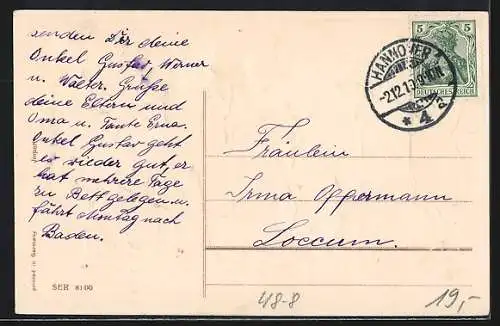 senden Dir deine
Onkel Gustav, Werner
u. Walter. Grüße
deine Eltern und
Oma u. Tante Erna.
Onkel Gustav geht
es wieder gut, er
hat mehrere Tage
zu Bett gelegen u.
fährt Montag nach
Baden.
HANNOVER
-2.12.13.9-10N.
* 4 d
5 5
DEUTSCHES REICH
Fräulein
Irma Oppermann
Loccum.
printed in Germany
SEH 8100
48-8
19,-